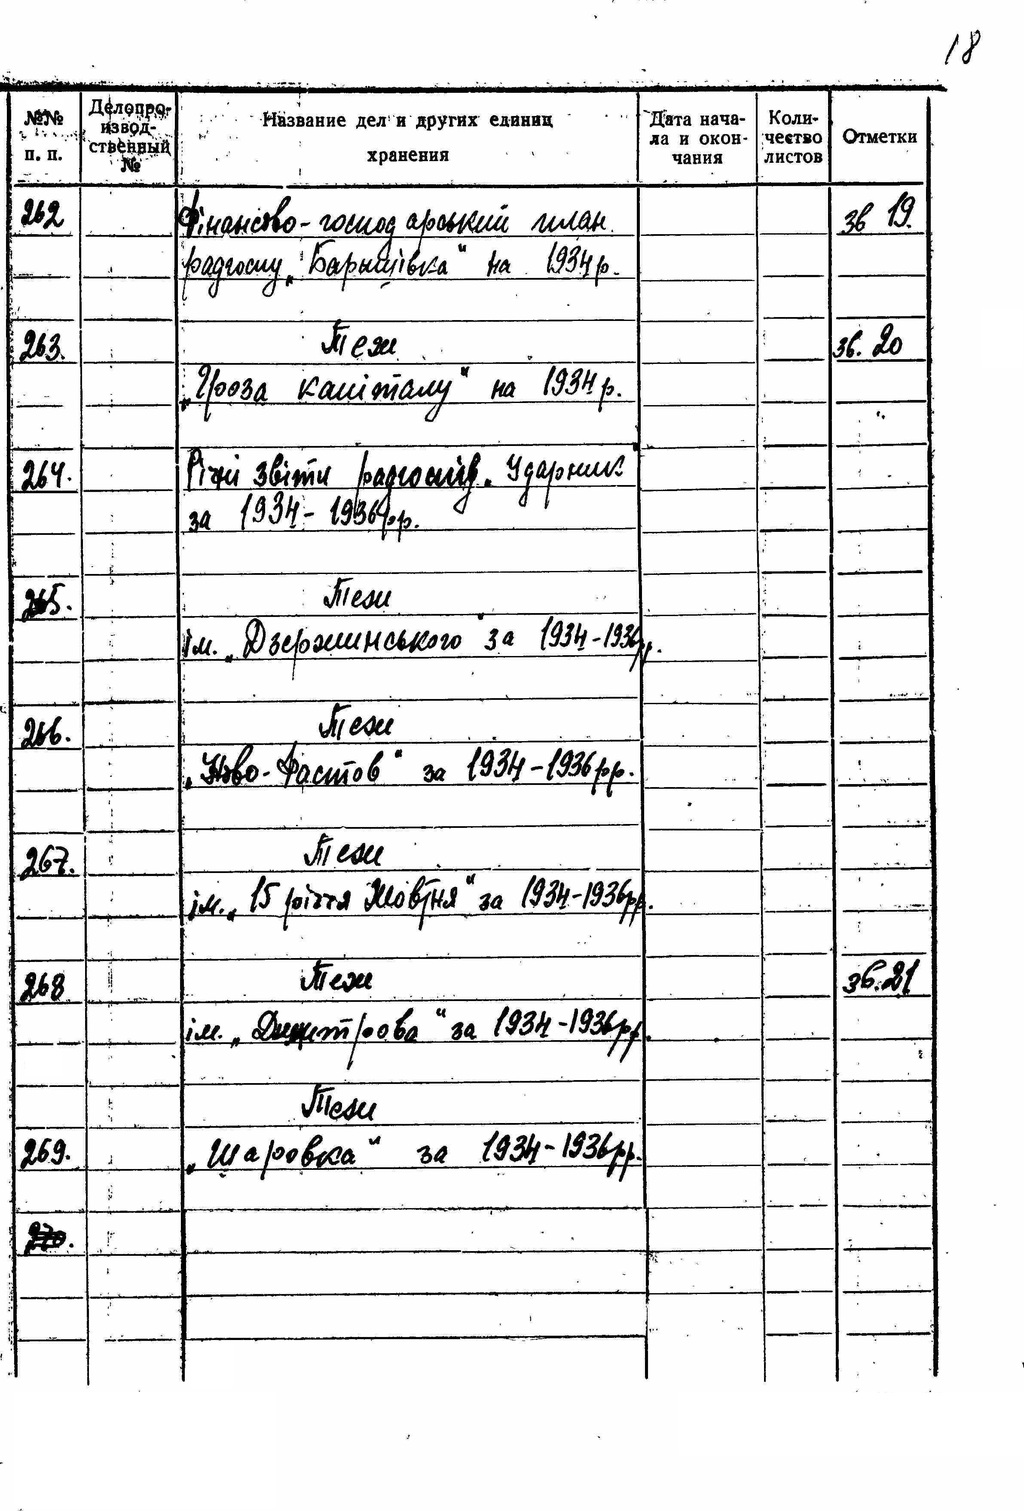 18
№№ п. п.
Делопроизводственный №
Название дел и других единиц хранения
Дата начала и окончания
Количество листов
Отметки
262 Фінансово-господарський план зв 19.
радгоспу „Баришівка“ на 1934 р.
263. Теж зв. 20
„Гроза капіталу“ на 1934 р.
264. Річні звіти радгоспів „Ударник“
за 1934-1936 рр.
265. Теж
ім. „Дзержинського“ за 1934-1936 рр.
266. Теж
„Ново-Фастов“ за 1934-1936 рр.
267. Теж
ім. „15 річчя Жовтня“ за 1934-1936 рр.
268 Теж зв. 21
ім. „Димитрова“ за 1934-1936 рр.
Теж
269. „Шаровка“ за 1934-1936 рр.
270.